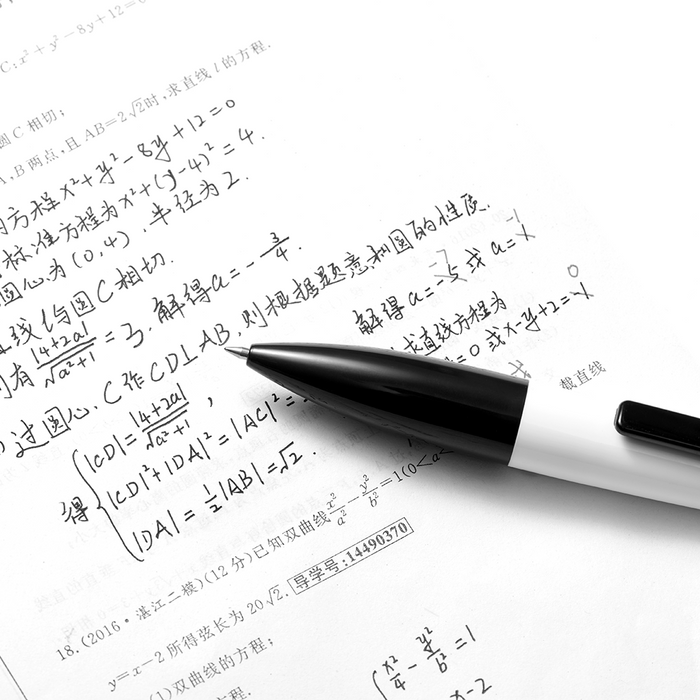 C:x²+y²-8y+12=0
圆C相切;
A,B两点,且AB=2√2时,求直线l的方程.
方程x²+y²-8y+12=0
标准方程为x²+(y-4)²=4.
圆心为(0,4),半径为2.
线l与圆C相切.
有|4+2a|/√(a²+1)=3.解得a=-3/4.
过圆心C作CD⊥AB,则根据题意和圆的性质.
得
|CD|=|4+2a|/√(a²+1),
|CD|²+|DA|²=|AC|²=
|DA|=1/2|AB|=√2.
解得a=-5或a=
求直线方程为
=0或x-y+2=
截直线
18.(2016·湛江二模)(12分)已知双曲线x²/a²-y²/b²=1(0<a<
y=x-2所得弦长为20√2. 导学号:14490370
(1)双曲线的方程;
方程.
x²/4-y²/b²=1
x-2